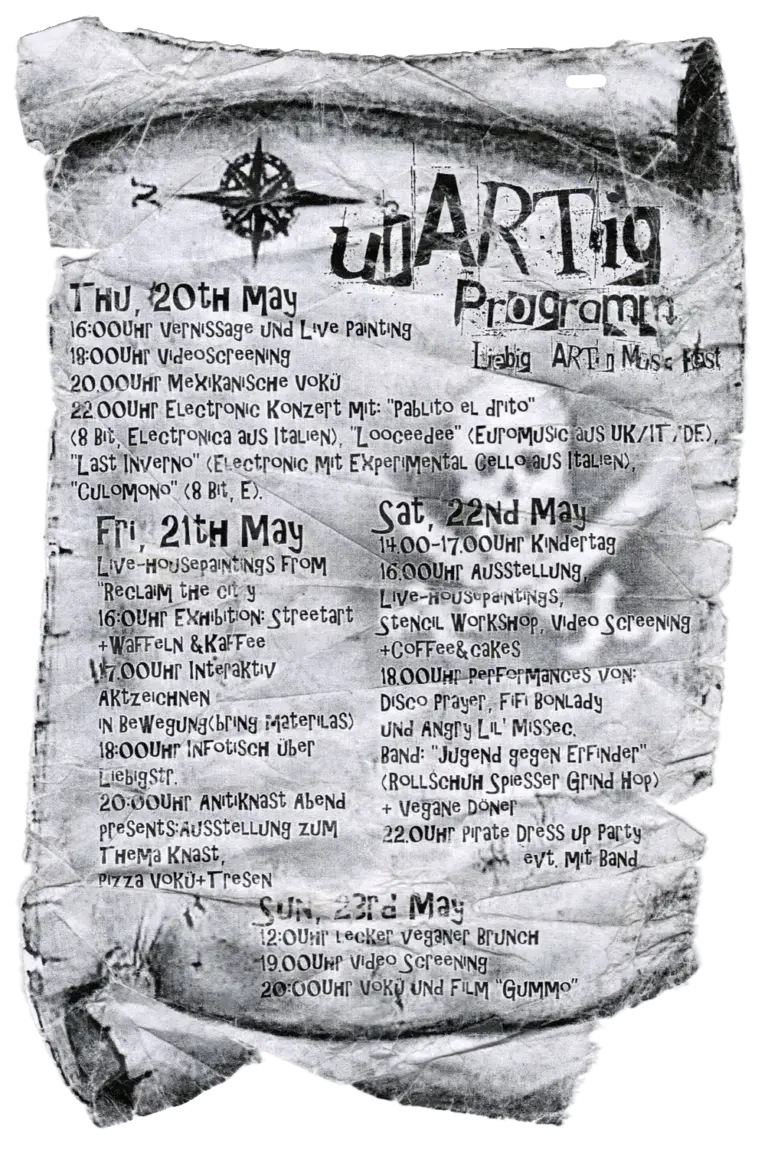 N
unARTig
Programm
Liebig ARTig Music Fest
Thu, 20th May
16:00Uhr Vernissage und Live Painting
18:00Uhr Videoscreening
20.00Uhr Mexikanische Vokü
22.00Uhr Electronic Konzert mit: "Pablito el drito"
(8 Bit, Electronica aus Italien), "Looceedee" (Euromusic aus UK/IT/DE),
"Last Inverno" (Electronic mit Experimental Cello aus Italien),
"Culomono" (8 Bit, E).
Fri, 21th May
Live-Housepaintings from
"Reclaim the city
16:0Uhr Exhibition: Streetart
+Waffeln &Kaffee
17.00Uhr Interaktiv
Aktzeichnen
in Bewegung(bring Materilas)
18:00Uhr Infotisch über
Liebigstr.
20:00Uhr Anitiknast Abend
presents:Ausstellung zum
Thema Knast,
Pizza Vokü+Tresen
Sat, 22nd May
14.00-17.00Uhr Kindertag
16.00Uhr Ausstellung,
Live-Housepaintings,
Stencil Workshop, Video Screening
+Coffee&cakes
18.00Uhr Performances von:
Disco Prayer, Fifi Bonlady
und Angry Lil' Missec.
Band: "Jugend gegen Erfinder"
(Rollschuh Spiesser Grind Hop)
+ Vegane Döner
22.0Uhr Pirate Dress up Party
evt. mit Band
Sun, 23rd May
12:0Uhr Lecker Veganer Brunch
19.00Uhr Video Screening
20:00Uhr Vokü und Film "Gummo"